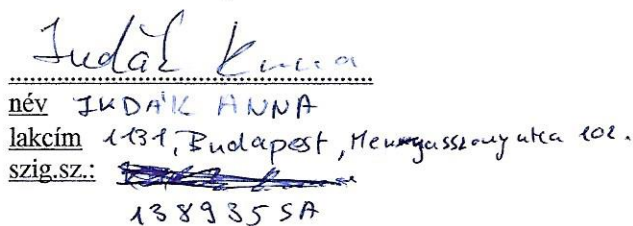 Judák Anna
név JUDÁK ANNA
lakcím 1131, Budapest, Menyasszony utca 102.
szig.sz.:
138935SA